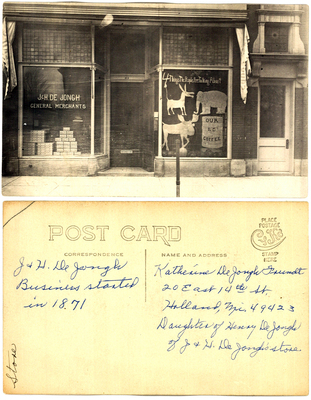 J & H DE JONGH
GENERAL MERCHANTS
OUR
COFFEE
POST CARD
CORRESPONDENCE
NAME AND ADDRESS
PLACE
POSTAGE
STAMP
HERE
J & H. De Jongh
Business started
in 1871
Katherine De Jongh
20 East 14th St.
Holland, Mi. 49423
Daughter of Henry De Jongh
of J & H. De Jongh's store.
Store